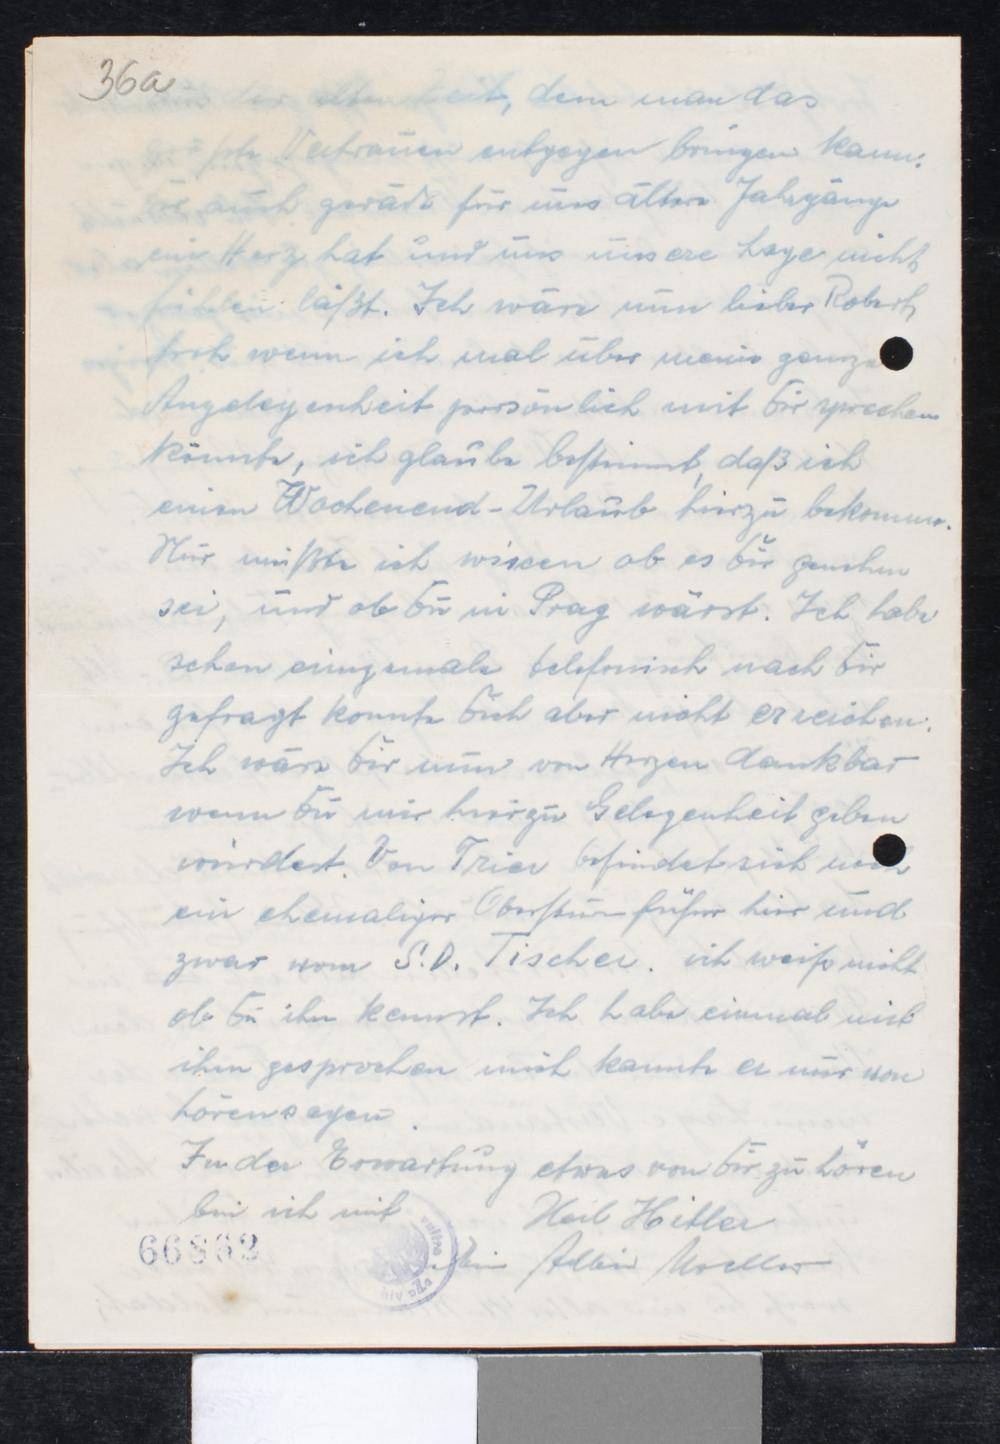 36a
der alten Zeit, dem man das
größte Vertrauen entgegen bringen kann.
Er auch gerade für uns ältere Jahrgänge
ein Herz hat und uns unsere Lage nicht
fühlen läßt. Ich wäre nun lieber Robert,
froh wenn ich mal über meine ganze
Angelegenheit persönlich mit Dir sprechen
könnte, ich glaube bestimmt, daß ich
einen Wochenend-Urlaub hierzu bekomme.
Nur müßte ich wissen ob es Dir genehm
sei, und ob Du in Prag wärst. Ich habe
schon einigemale telefonisch nach Dir
gefragt konnte Dich aber nicht erreichen.
Ich wäre Dir nun von Herzen dankbar
wenn Du mir hierzu Gelegenheit geben
würdest. Von Trier befindet sich noch
ein ehemaliger Obersturmführer hier und
zwar vom S.D. Tischer. ich weiß nicht
ob Du ihn kennst. Ich habe einmal mit
ihm gesprochen mich kannte er nur von
hörensagen.
In der Erwartung etwas von Dir zu hören
bin ich mit Heil Hitler
66862
Albin Mo